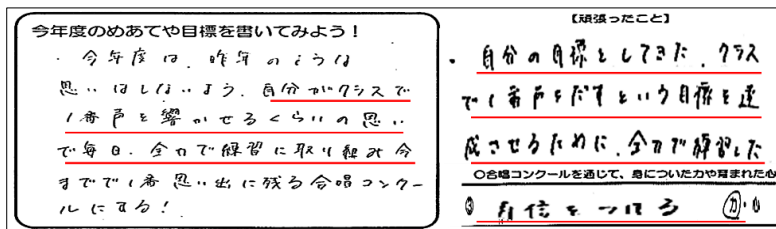 今年度のめあてや目標を書いてみよう！
・今年度は、昨年のような
思いはしないよう、自分がクラスで
1番声を響かせるくらいの思い
で毎日、全力で練習に取り組み今
までで1番思い出に残る合唱コンクー
ルにする！
【頑張ったこと】
・自分の目標としてきた、クラス
で1番声をだすという目標を達
成させるために、全力で練習した
○合唱コンクールを通じて、身についた力や育まれた心
③ 自信をつける 力・心